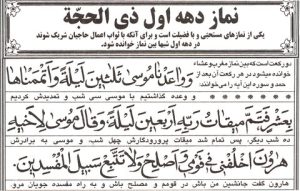 نماز دهه اول ذی الحجّة
یکی از نمازهای مستحبّی و با فضیلت است و برای آنکه با ثواب اعمال حاجیان شریک شوند
در دهه اول شبها بین نماز خوانده شود.
دو رکعت است که بین نماز مغرب و عشاء
خوانده میشود در هر رکعت آن بعد از
حمد و سوره این آیه را می‌خوانند
وَ وَاعَدْنَا مُوسَىٰ ثَلَٰثِينَ لَيْلَةً وَأَتْمَمْنَاهَا
و وعده گذاشتیم با موسی سی شب و تمدیدش کردیم
بِعَشْرٍ فَتَمَّ مِيقَاتُ رَبِّهِ أَرْبَعِينَ لَيْلَةً وَقَالَ مُوسَىٰ لِأَخِيهِ
ده شب دیگر، پس تمام شد میقات پروردگارش چهل شب، و موسی به برادرش
هَٰرُونَ اخْلُفْنِي فِي قَوْمِي وَأَصْلِحْ وَلَا تَتَّبِعْ سَبِيلَ الْمُفْسِدِينَ
هارون گفت جانشین من باش در قومم و مصلح باش و به راه مفسده جویان مرو